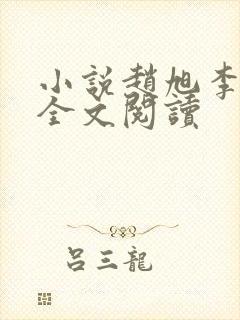 小說趙旭李
全文閱讀
呂三龍